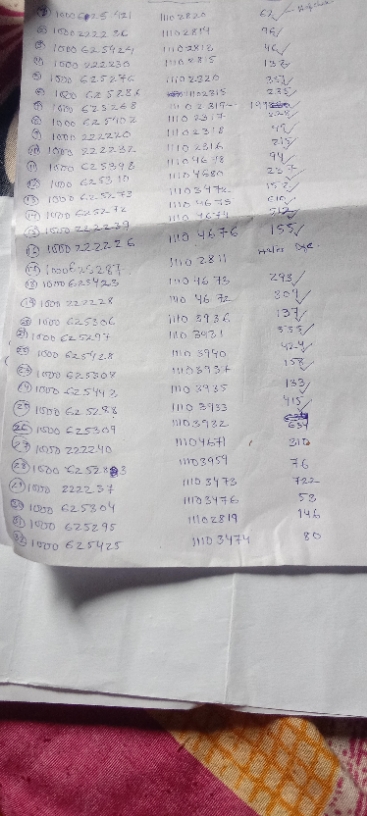 1000625421 11102820 62 ✓
1000222236 11102814 96 ✓
1000625424 11102818 46 ✓
1000222230 11102815 132 ✓
1000625276 11102820 352 ✓
1000625286 11102315 235 ✓
1000625268 11102315
1000625402 11102317 228 ✓
1000222220 11102318 48 ✓
⑩ 1000222232 11102816 215 ✓
⑪ 1000625398 11104678 94 ✓
1000625310 11104680 237 ✓
⑬ 1000625273 11103472 152 ✓
1000625272 11104675
1000222239 11104674 512 ✓
1000222226 11104676 155 ✓
1000625287 11102811
⑱ 1000625423 11104673 293 ✓
⑲ 1000222228 1110 4672 309 ✓
1000625306 11103936 137 ✓
1000625297 11103931 353 ✓
1000625428 11103940 424 ✓
1000625308 11103937 158 ✓
1000625442 11103935 133 ✓
㉕ 1000625288 11103933 415 ✓
㉖ 1000625309 11103932 634
㉗ 1000222240 11104671 310
㉘ 100062528 3 11103959 76
㉙ 1000222237 11103473 722
㉚ 1000625304 11103476 58
㉛ 1000625295 11102819 146
㉜ 1000625425 11103474 80